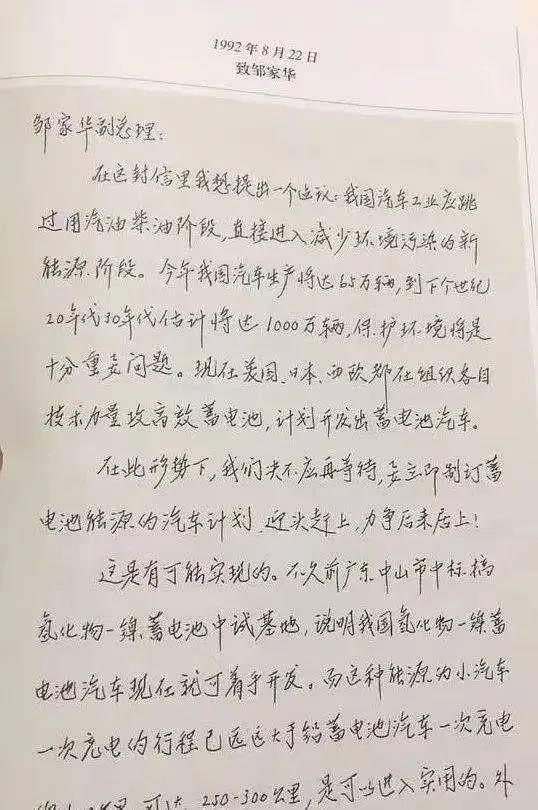 1992 年 8 月 22 日
致邹家华
邹家华副总理：
在这封信里我想提出一个建议：我国汽车工业应跳
过用汽油柴油阶段，直接进入减少环境污染的新
能源阶段。今年我国汽车生产将达65万辆，到下个世纪
20年代30年代估计将达1000万辆，保护环境将是
十分重要问题。现在美国、日本、西欧都在组织各自
技术力量攻高效蓄电池，计划开发出蓄电池汽车。
在此形势下，我们决不应再等待，要立即制订蓄
电池能源的汽车计划，迎头赶上，力争后来居上！
这是有可能实现的。不久前广东中山市中标搞
氢化物—镍蓄电池中试基地，说明我国氢化物—镍蓄
电池汽车现在就可着手开发。而这种能源的小汽车
一次充电的行程已远远大于铅蓄电池汽车一次充电
公里，可达 250-300公里，是可以进入实用的。外